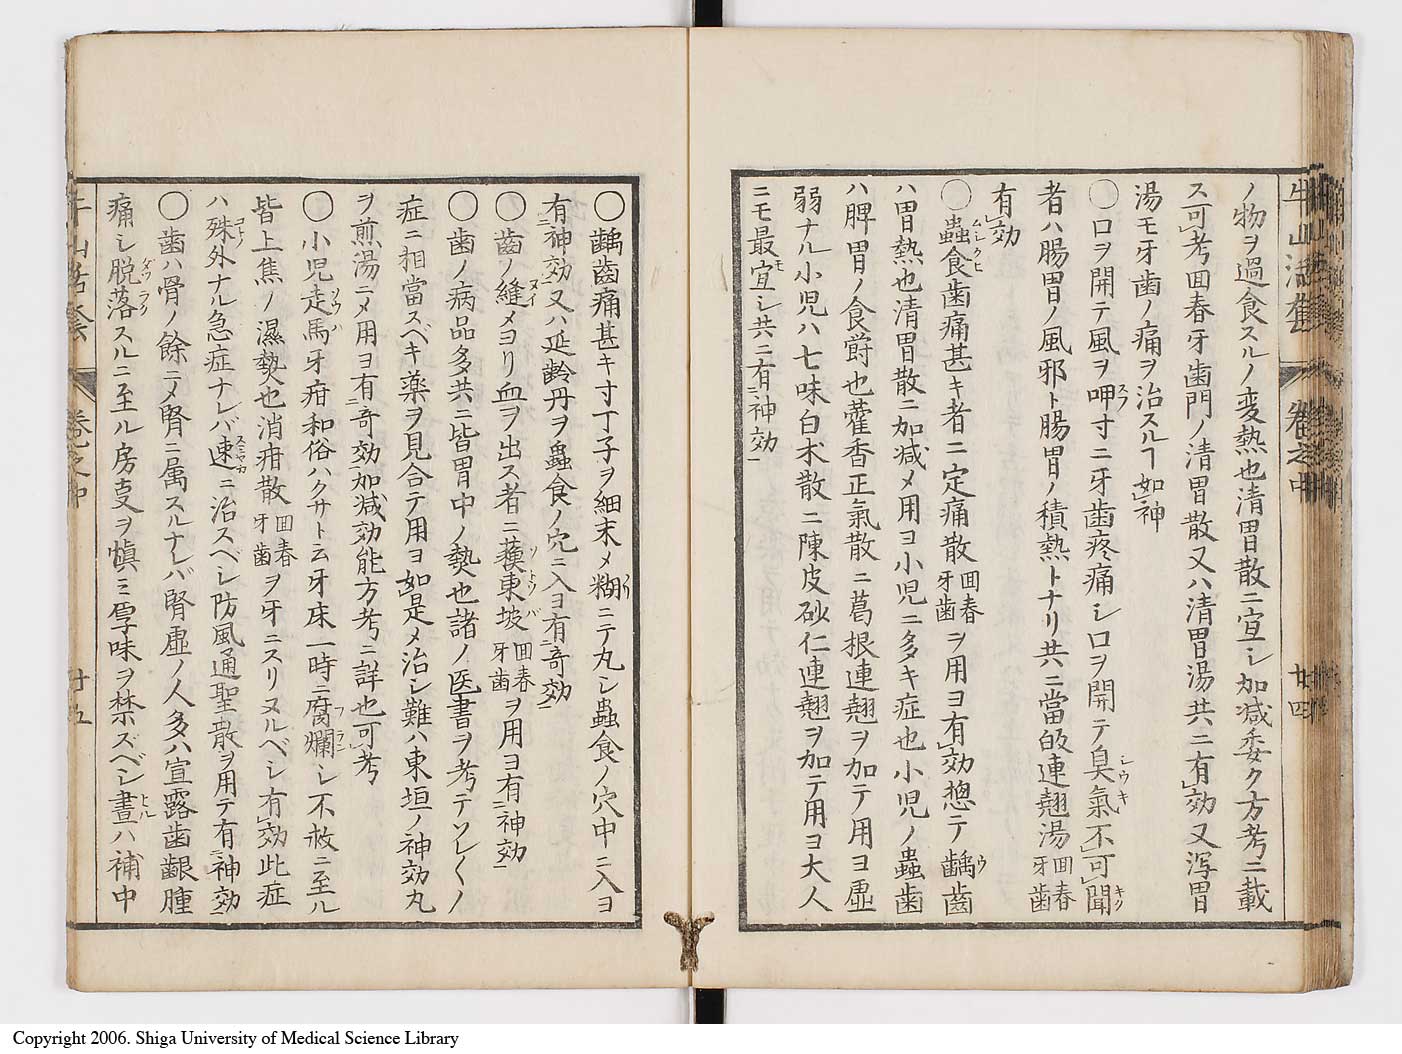 牛山活套 卷之中 廿四
ノ物ヲ過食スルノ変熱也清胃散ニ宜シ加減委ク方考ニ載
ス可考回春牙歯門ノ清胃散又ハ清胃湯共ニ有効又瀉胃
湯モ牙歯ノ痛ヲ治スルヿ如神
○口ヲ開テ風ヲ呷寸ニ牙歯疼痛シ口ヲ開テ臭氣不可聞
者ハ腸胃ノ風邪ト腸胃ノ積熱トナリ共ニ當皈連翹湯回春牙歯
有効
○蟲食歯痛甚キ者ニ定痛散回春牙歯ヲ用ヨ有効揔テ齲歯
ハ胃熱也清胃散ニ加减メ用ヨ小児ニ多キ症也小児ノ蟲歯
ハ脾胃ノ食爵也藿香正氣散ニ葛根連翹ヲ加テ用ヨ虚
弱ナル小児ハ七味白朮散ニ陳皮砂仁連翹ヲ加テ用ヨ大人
ニモ最宜シ共ニ有神効
○齲齒痛甚キ寸丁子ヲ細末メ糊ニテ丸シ蟲食ノ穴中ニ入ヨ
有神効又ハ延齢丹ヲ蟲食ノ穴ニ入ヨ有奇効
○齒ノ縫メヨリ血ヲ出ス者ニ蘓東坡回春牙歯ヲ用ヨ有神効
○歯ノ病品多共ニ皆胃中ノ熱也諸ノ医書ヲ考テソレ〱ノ
症ニ相當スベキ薬ヲ見合テ用ヨ如是メ治シ難ハ東垣ノ神効丸
ヲ煎湯ニメ用ヨ有奇効加减効能方考ニ詳也可考
○小児走馬牙疳和俗ハクサト云牙床一時ニ腐爛シ不救ニ至ル
皆上焦ノ濕熱也消疳散回春牙歯ヲ牙ニスリヌルベシ有効此症
ハ殊外ナル急症ナレバ速ニ治スベシ防風通聖散ヲ用テ有神効
○歯ハ骨ノ餘ニメ腎ニ属スルナレバ腎虚ノ人多ハ宣露歯齦腫
痛シ脱落スルニ至ル房亥ヲ慎ミ厚味ヲ禁ズベシ晝ハ補中
牛山活套 卷之中 廿五
Copyright 2006. Shiga University of Medical Science Library